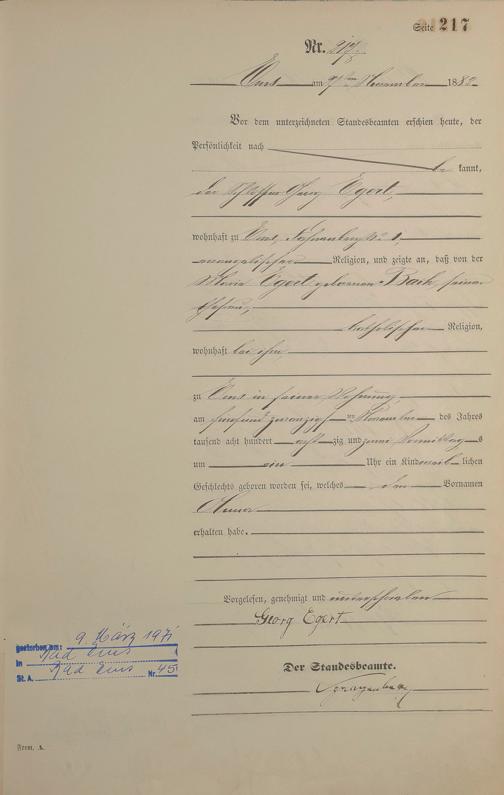 Seite 217
Nr. 217.
Ems am 27ten November 1882
Vor dem unterzeichneten Standesbeamten erschien heute, der
Persönlichkeit nach
be kannt,
der Schlosser Georg Egert,
wohnhaft zu Ems,
evangelischer Religion, und zeigte an, daß von der
Maria Egert geborenen Bach, seiner
Ehefrau,
katholischer Religion,
wohnhaft bei ihm,
zu Ems in seiner Wohnung,
am fünfundzwanzigsten November des Jahres
tausend acht hundert acht zig und zwei Vormittag s
um ein Uhr ein Kind weib lichen
Geschlechts geboren worden sei, welches den Vornamen
Anna
erhalten habe.
Vorgelesen, genehmigt und unterschrieben
Georg Egert
Der Standesbeamte.
gestorben am: 9. März 1971
in Bad Ems
St. A. Bad Ems Nr. 45
Form. A.